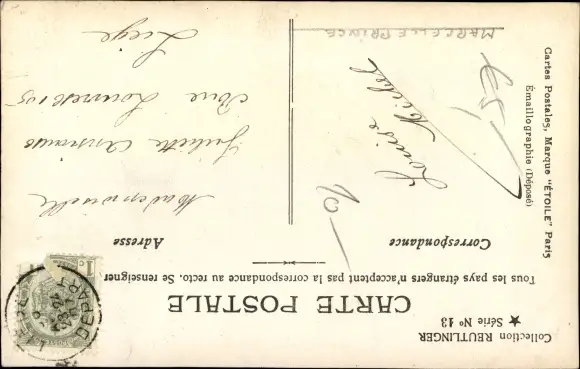 Collection REUTLINGER
★ Série No 13
CARTE POSTALE
Tous les pays étrangers n'acceptent pas la correspondance au recto. Se renseigner
Correspondance
Adresse
Cartes Postales, Marque "ÉTOILE" Paris
Émaillographie (Déposé)
Louise
Michel
MARCELLE PRINCE
Mademoiselle
Juliette
Rue
Liège
DEPART
1c